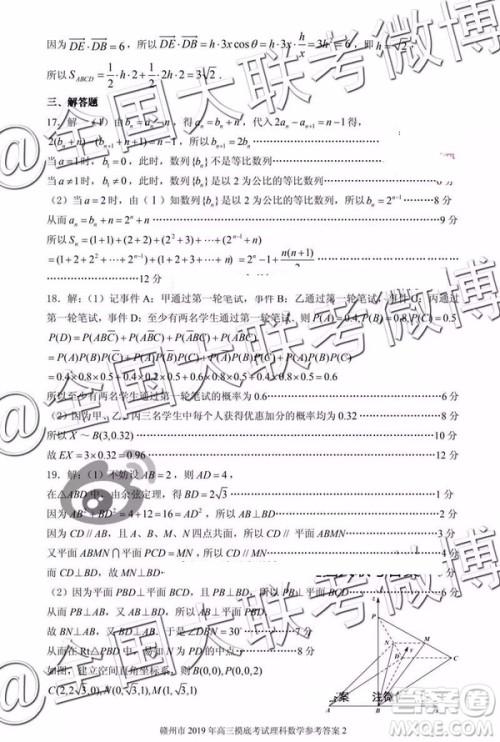 因为DE·DB=6，所以DE·DB=h·3x cosθ=h·3x·h/3x=h²=6，即h=√2.
所以S_ABCD=1/2·h·2+1/2·2h·2=3√2.
三、解答题
17. 解：（1）由bₙ=aₙ−n，得aₙ=bₙ+n，代入2aₙ−aₙ₊₁=n−1得，
2(bₙ+n)−(bₙ₊₁+n+1)=n−1，
当a=1时，b₁=0，此时，数列{bₙ}不是等比数列
当a≠1时，b₁≠0，此时，数列{bₙ}是以2为公比的等比数列
（2）当a=2时，由（Ⅰ）知数列{bₙ}是以2为公比的等比数列，所以bₙ=2ⁿ⁻¹ 8分
从而aₙ=bₙ+n=2ⁿ⁻¹+n 9分
所以Sₙ=(1+1)+(2+2)+(2²+3)+⋯+(2ⁿ⁻¹+n)
=(1+2+2²+⋯+2ⁿ⁻¹)+(1+2+3+⋯+n)=2ⁿ−1+n(n+1)/2
12分
18. 解：（1）记事件A：甲通过第一轮笔试，事件B：乙通过第一轮笔试，事件C：丙通过
第一轮笔试，事件D：至少有两名学生通过第一轮笔试，则P(A)=0.4,P(B)=0.8,P(C)=0.5
=0.4×0.8×0.5+0.6×0.8×0.5+0.4×0.2×0.5+0.4×0.8×0.5=0.6
所以至少有两名学生通过第一轮笔试的概率为0.6 6分
（2）因为甲、乙、丙三名学生中每个人获得优惠加分的概率均为0.32 8分
所以X～B(3,0.32) 10分
故EX=3×0.32=0.96 12分
19. 解：（1）不妨设AB=2，则AD=4，
在△ABD中，由余弦定理，得BD=2√3 1分
因为AB²+BD²=4+12=16=AD²，所以AB⊥BD 2分
因为CD∥AB，且A、B、M、N四点共面，所以CD∥平面ABMN 3分
又平面ABMN∩平面PCD=MN，所以CD∥MN 4分
而CD⊥BD，故MN⊥BD
（2）因为平面PBD⊥平面BCD，且PB⊥BD，所以PB⊥平面
故BN⊥AB，又BD⊥AB，于是∠DBN=30°
从而在Rt△PBD中，易知N为PD的中点
如图，建立空间直角坐标系，则B(0,0,0),P(0,0,2)
赣州市2019年高三摸底考试理科数学参考答案2
@全国大联考微博